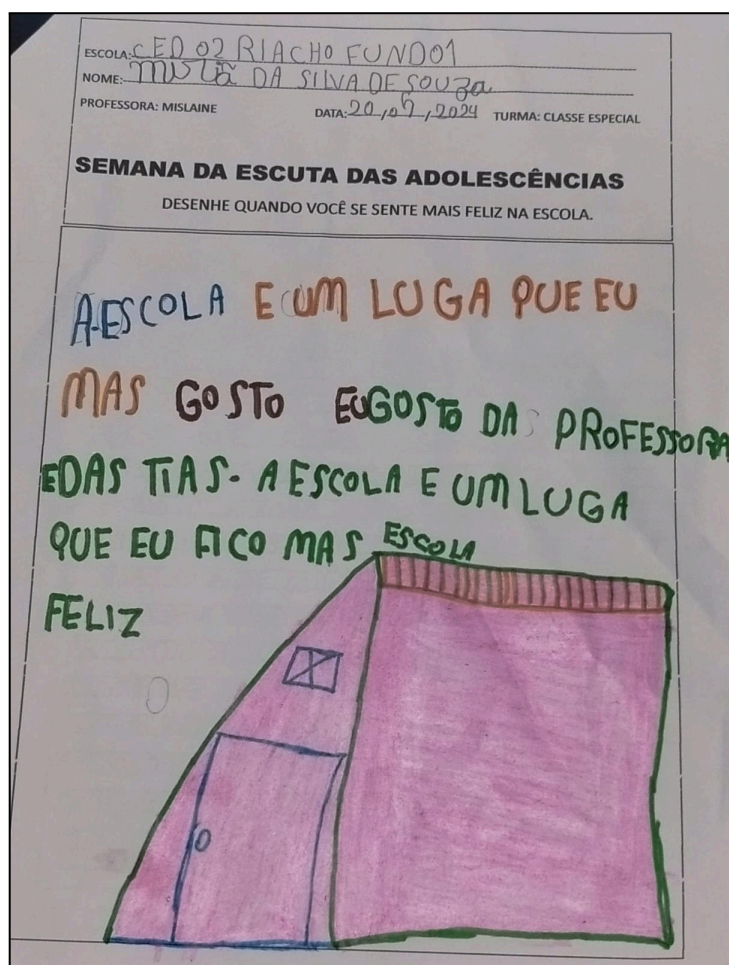 ESCOLA: CED 02 RIACHO FUNDO 1
NOME: DA SILVA DE SOUZA
PROFESSORA: MISLAINE DATA: 20,09,2024 TURMA: CLASSE ESPECIAL
SEMANA DA ESCUTA DAS ADOLESCÊNCIAS
DESENHE QUANDO VOCÊ SE SENTE MAIS FELIZ NA ESCOLA.
A ESCOLA E UM LUGA QUE EU
MAS GOSTO EU GOSTO DA PROFESSORA
E DAS TIAS. A ESCOLA E UM LUGA
QUE EU FICO MAS ESCOLA
FELIZ